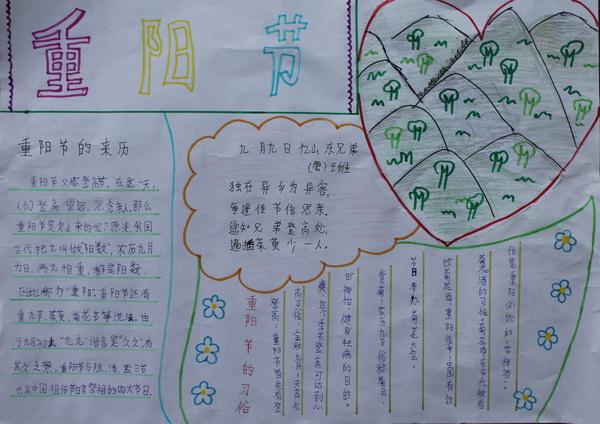 重阳节
重阳节的来历
重阳节又称登高节。在这一天,
人们登高望远,思念亲人,那么
重阳节是怎么来的呢?原来我国
古代把九叫做"阳数",农历九月
九日,两九相重,都是阳数,
因此称为"重阳"。重阳节还有
重九节、茱萸、菊花节等说法。由
于九月初九"九九"谐音是"久久",有
长久之意,重阳节与除、清、盂三节
也是中国祖传节日里祭祖的四大节日。
九月九日忆山东兄弟
(唐)王维
独在异乡为异客,
每逢佳节倍思亲。
遥知兄弟登高处,
遍插茱萸少一人。
重阳节的习俗
登高:重阳节首先有登
高习俗,金秋九月,天高气
爽,这个季节登高可达到心
旷神怡、健身祛病的目的。
赏菊:农历九月俗称菊月,
节日举办菊花大会。
饮菊花酒:重阳佳节,中国有饮
菊花酒的习俗。菊花酒在古代被看
作是重阳必饮的